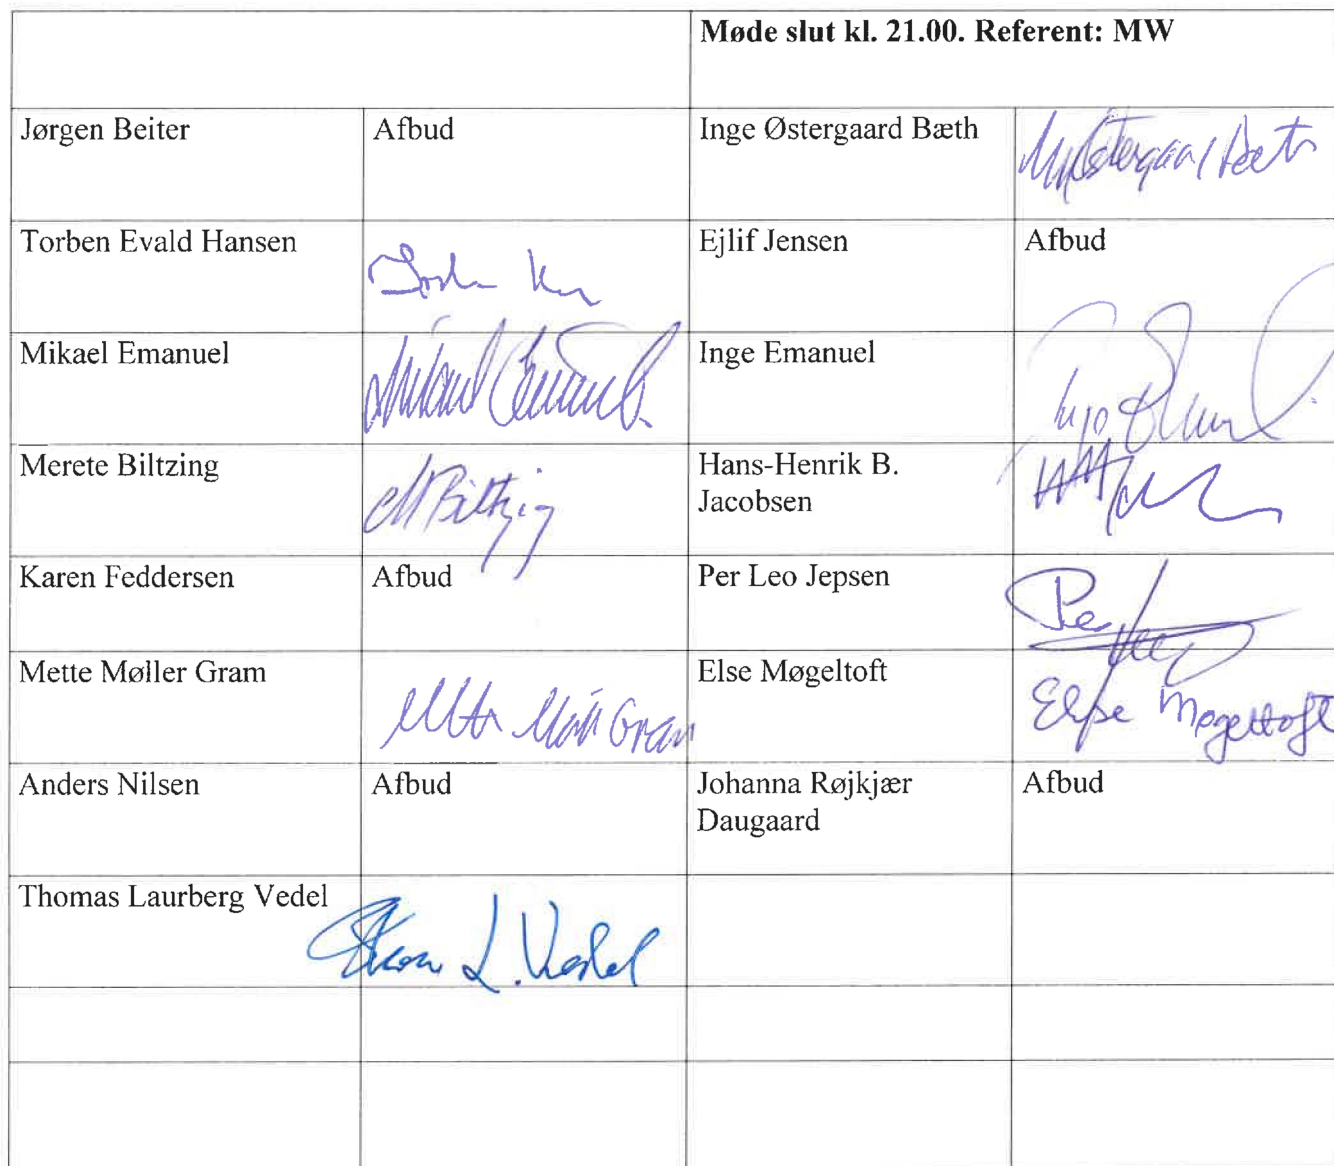 Møde slut kl. 21.00. Referent: MW
Jørgen Beiter Afbud Inge Østergaard Bæth
Torben Evald Hansen Ejlif Jensen Afbud
Mikael Emanuel Mikael Emanuel Inge Emanuel
Merete Biltzing M Biltzing Hans-Henrik B.
Jacobsen
Karen Feddersen Afbud Per Leo Jepsen Per
Mette Møller Gram Gram Else Møgeltoft Else Møgeltoft
Anders Nilsen Afbud Johanna Røjkjær
Daugaard Afbud
Thomas Laurberg Vedel L. Vedel